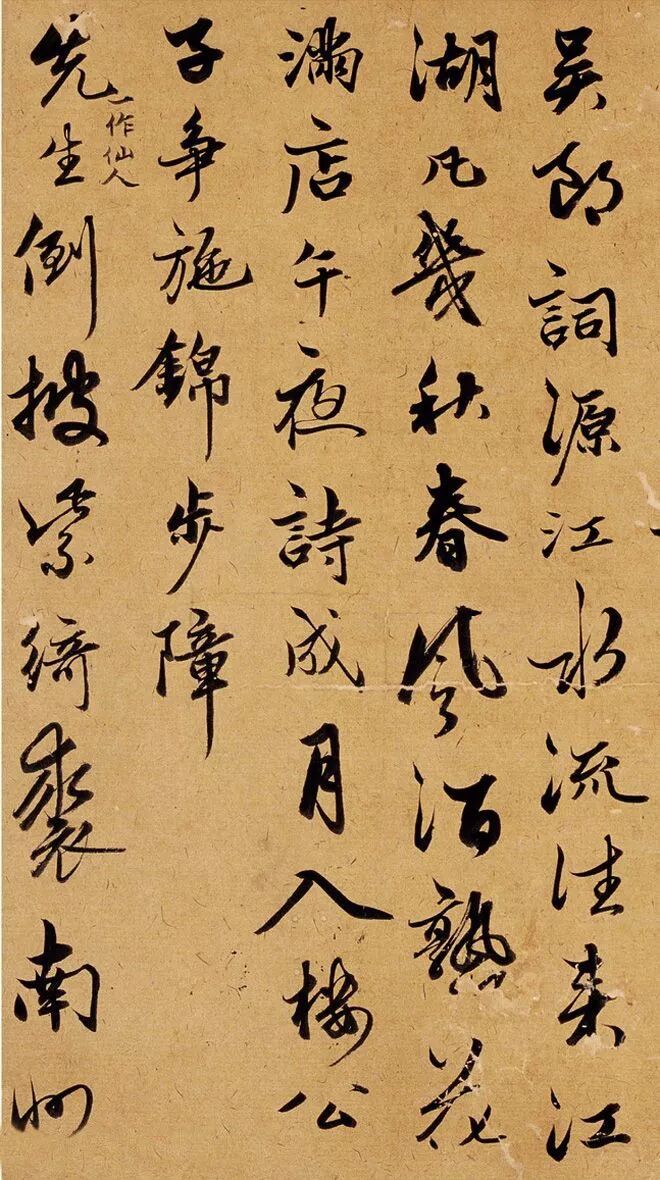 吴郎詞源江水流往来江
湖凡幾秋春風酒熟花
滿店午夜詩成月入樓公
子争施錦步障
先生一作仙人倒披紫綺裘南州